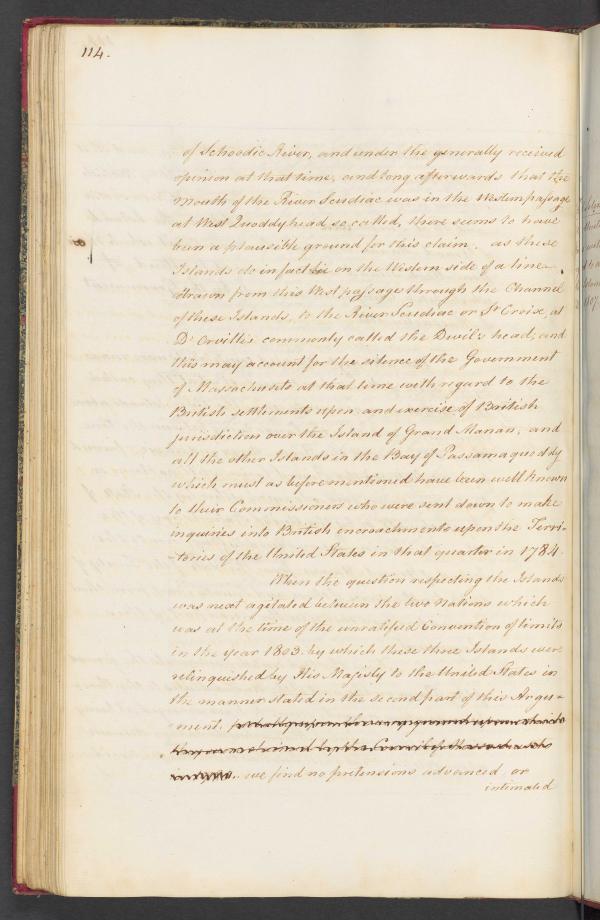 114.
of Schoodic River, and under the generally received
opinion at that time, and long afterwards that the
Mouth of the River Scudiac was in the Western passage
at West Quoddy head so called, there seems to have
been a plausible ground for this claim. as these
Islands do in fact lie on the Western side of a line
drawn from this West passage through the Channel
of these Islands, to the River Scudiac or St Croix, at
D'Orville's commonly called the Devil's head, and
this may account for the silence of the Government
of Massachusets at that time with regard to the
British settlements upon and exercise of British
jurisdiction over the Island of Grand Manan, and
all the other Islands in the Bay of Passamaquoddy
which must as before mentioned have been well known
to their Commissioners who were sent down to make
inquiries into British encroachments upon the Terri-
-tories of the United States in that quarter in 1784.
When the question respecting the Islands
was next agitated between the two Nations which
was at the time of the unratified Convention of limits
in the year 1803. by which these three Islands were
relinquished by His Majesty to the United States in
the manner stated in the second part of this Argu-
-ment.
we find no pretensions advanced, or
intimated